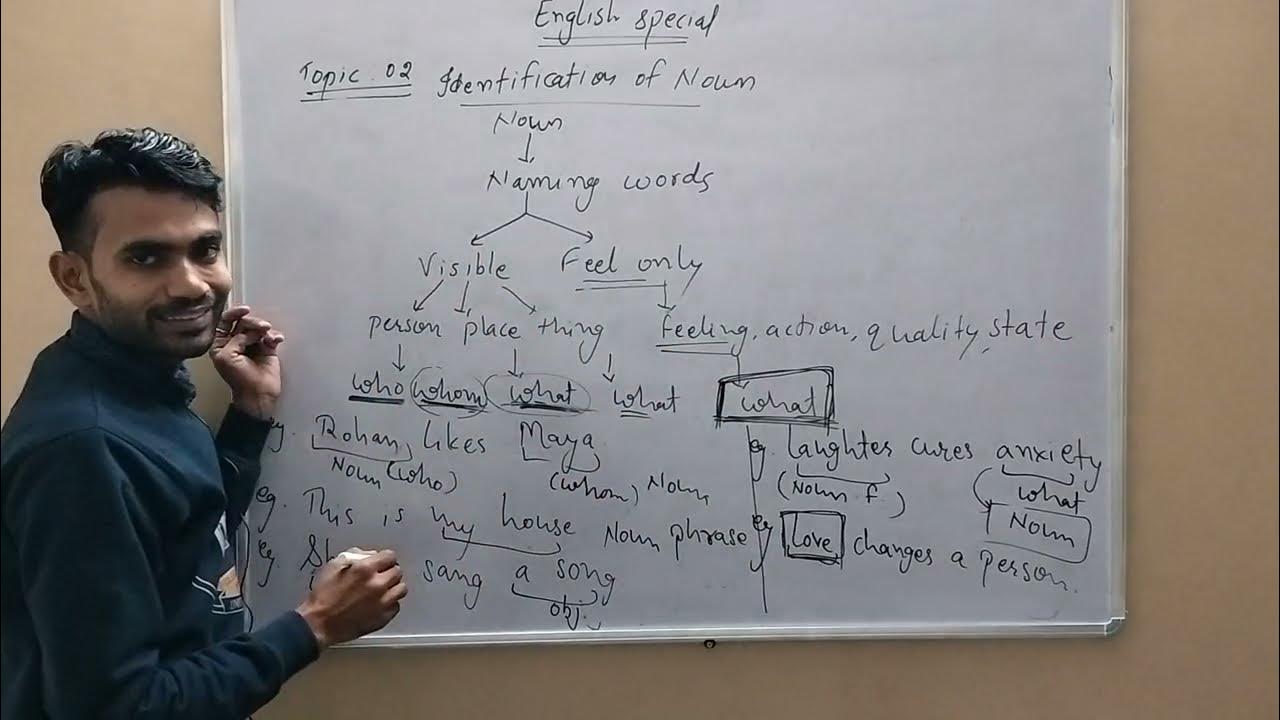 English special
Topic. 02 Identification of Noun
Noun
Naming words
Visible Feel only
person place thing Feeling, action, quality, state
who whom what what what
eg. Rohan likes Maya
Noun (who) (whom) Noun
eg. This is my house Noun phrase
eg sang a song
obj.
eg. laughter cures anxiety
(Noun f) what
Noun
eg love changes a person.